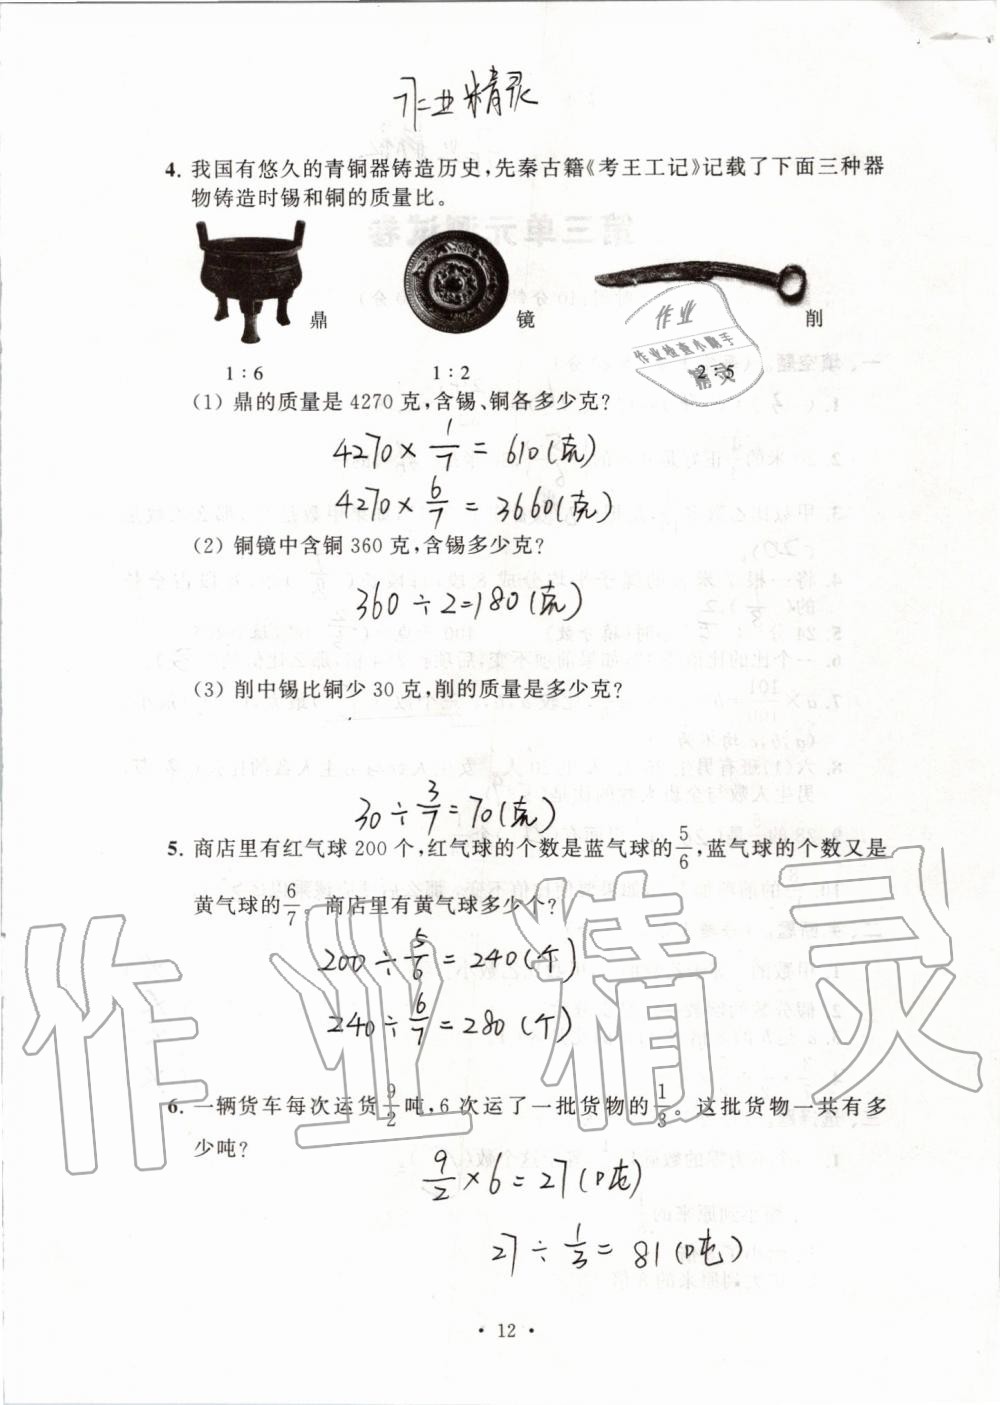 作业精灵
4. 我国有悠久的青铜器铸造历史,先秦古籍《考王工记》记载了下面三种器
物铸造时锡和铜的质量比。
鼎 镜 削
作业
作业检查小助手
精灵
1:6 1:2 2:5
(1) 鼎的质量是 4270 克,含锡、铜各多少克?
4270 × 1/7 = 610(克)
4270 × 6/7 = 3660(克)
(2) 铜镜中含铜 360 克,含锡多少克?
360 ÷ 2 = 180(克)
(3) 削中锡比铜少 30 克,削的质量是多少克?
30 ÷ 3/7 = 70(克)
5. 商店里有红气球 200 个,红气球的个数是蓝气球的 5/6,蓝气球的个数又是
黄气球的 6/7。商店里有黄气球多少个?
200 ÷ 5/6 = 240(个)
240 ÷ 6/7 = 280(个)
作业精灵
6. 一辆货车每次运货 9/2 吨,6 次运了一批货物的 1/3。这批货物一共有多
少吨?
9/2 × 6 = 27(吨)
27 ÷ 1/3 = 81(吨)
· 12 ·